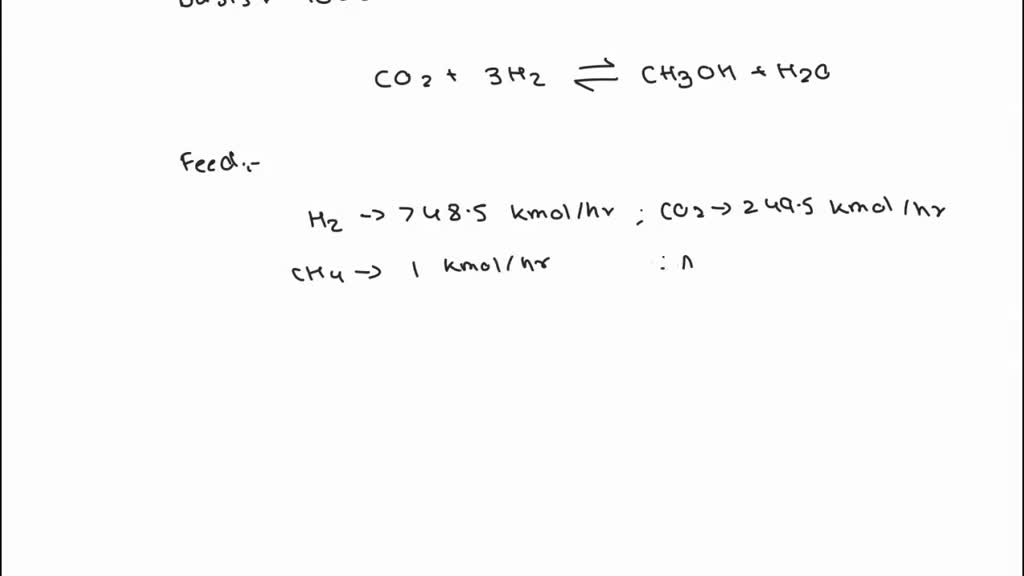 CO2 + 3H2 ⇌ CH3OH + H2O
Feed:-
H2 -> 748.5 kmol/hr ; CO2 -> 249.5 kmol/hr
CH4 -> 1 kmol/hr : n